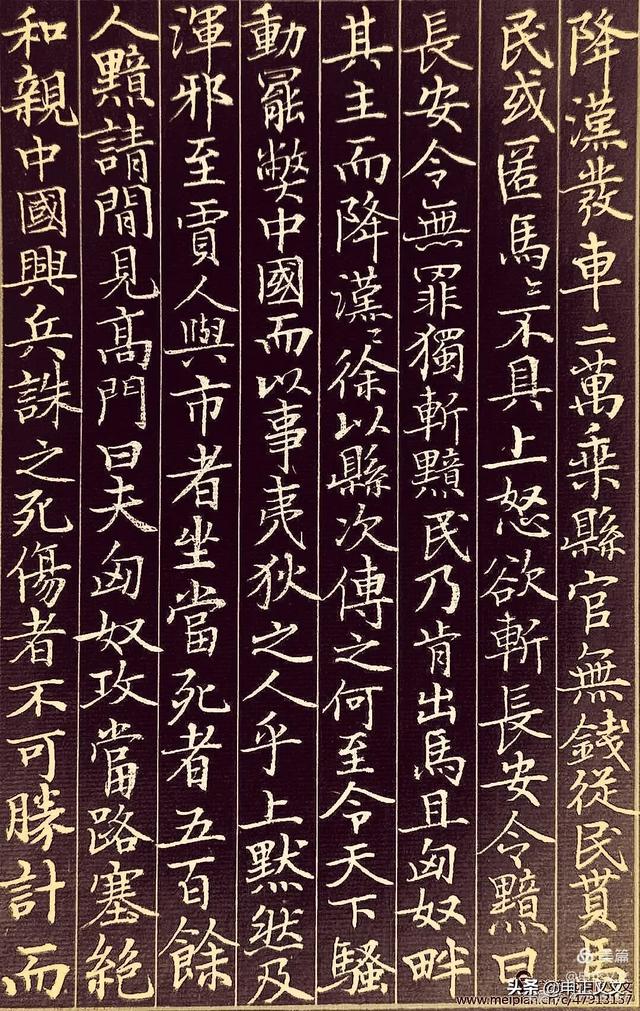 降漢發車二萬乗縣官無錢從民貰
民或匿馬〻不具上怒欲斬長安令黯曰
長安令無罪獨斬黯民乃肯出馬且匈奴畔
其主而降漢〻徐以縣次傳之何至令天下騷
動罷弊中國而以事夷狄之人乎上默然及
渾邪至賈人與市者坐當死者五百餘
人黯請間見髙門曰夫匈奴攻當路塞絶
和親中國興兵誅之死傷者不可勝計而
美篇
头条
www.meipian.cn/c/47913157